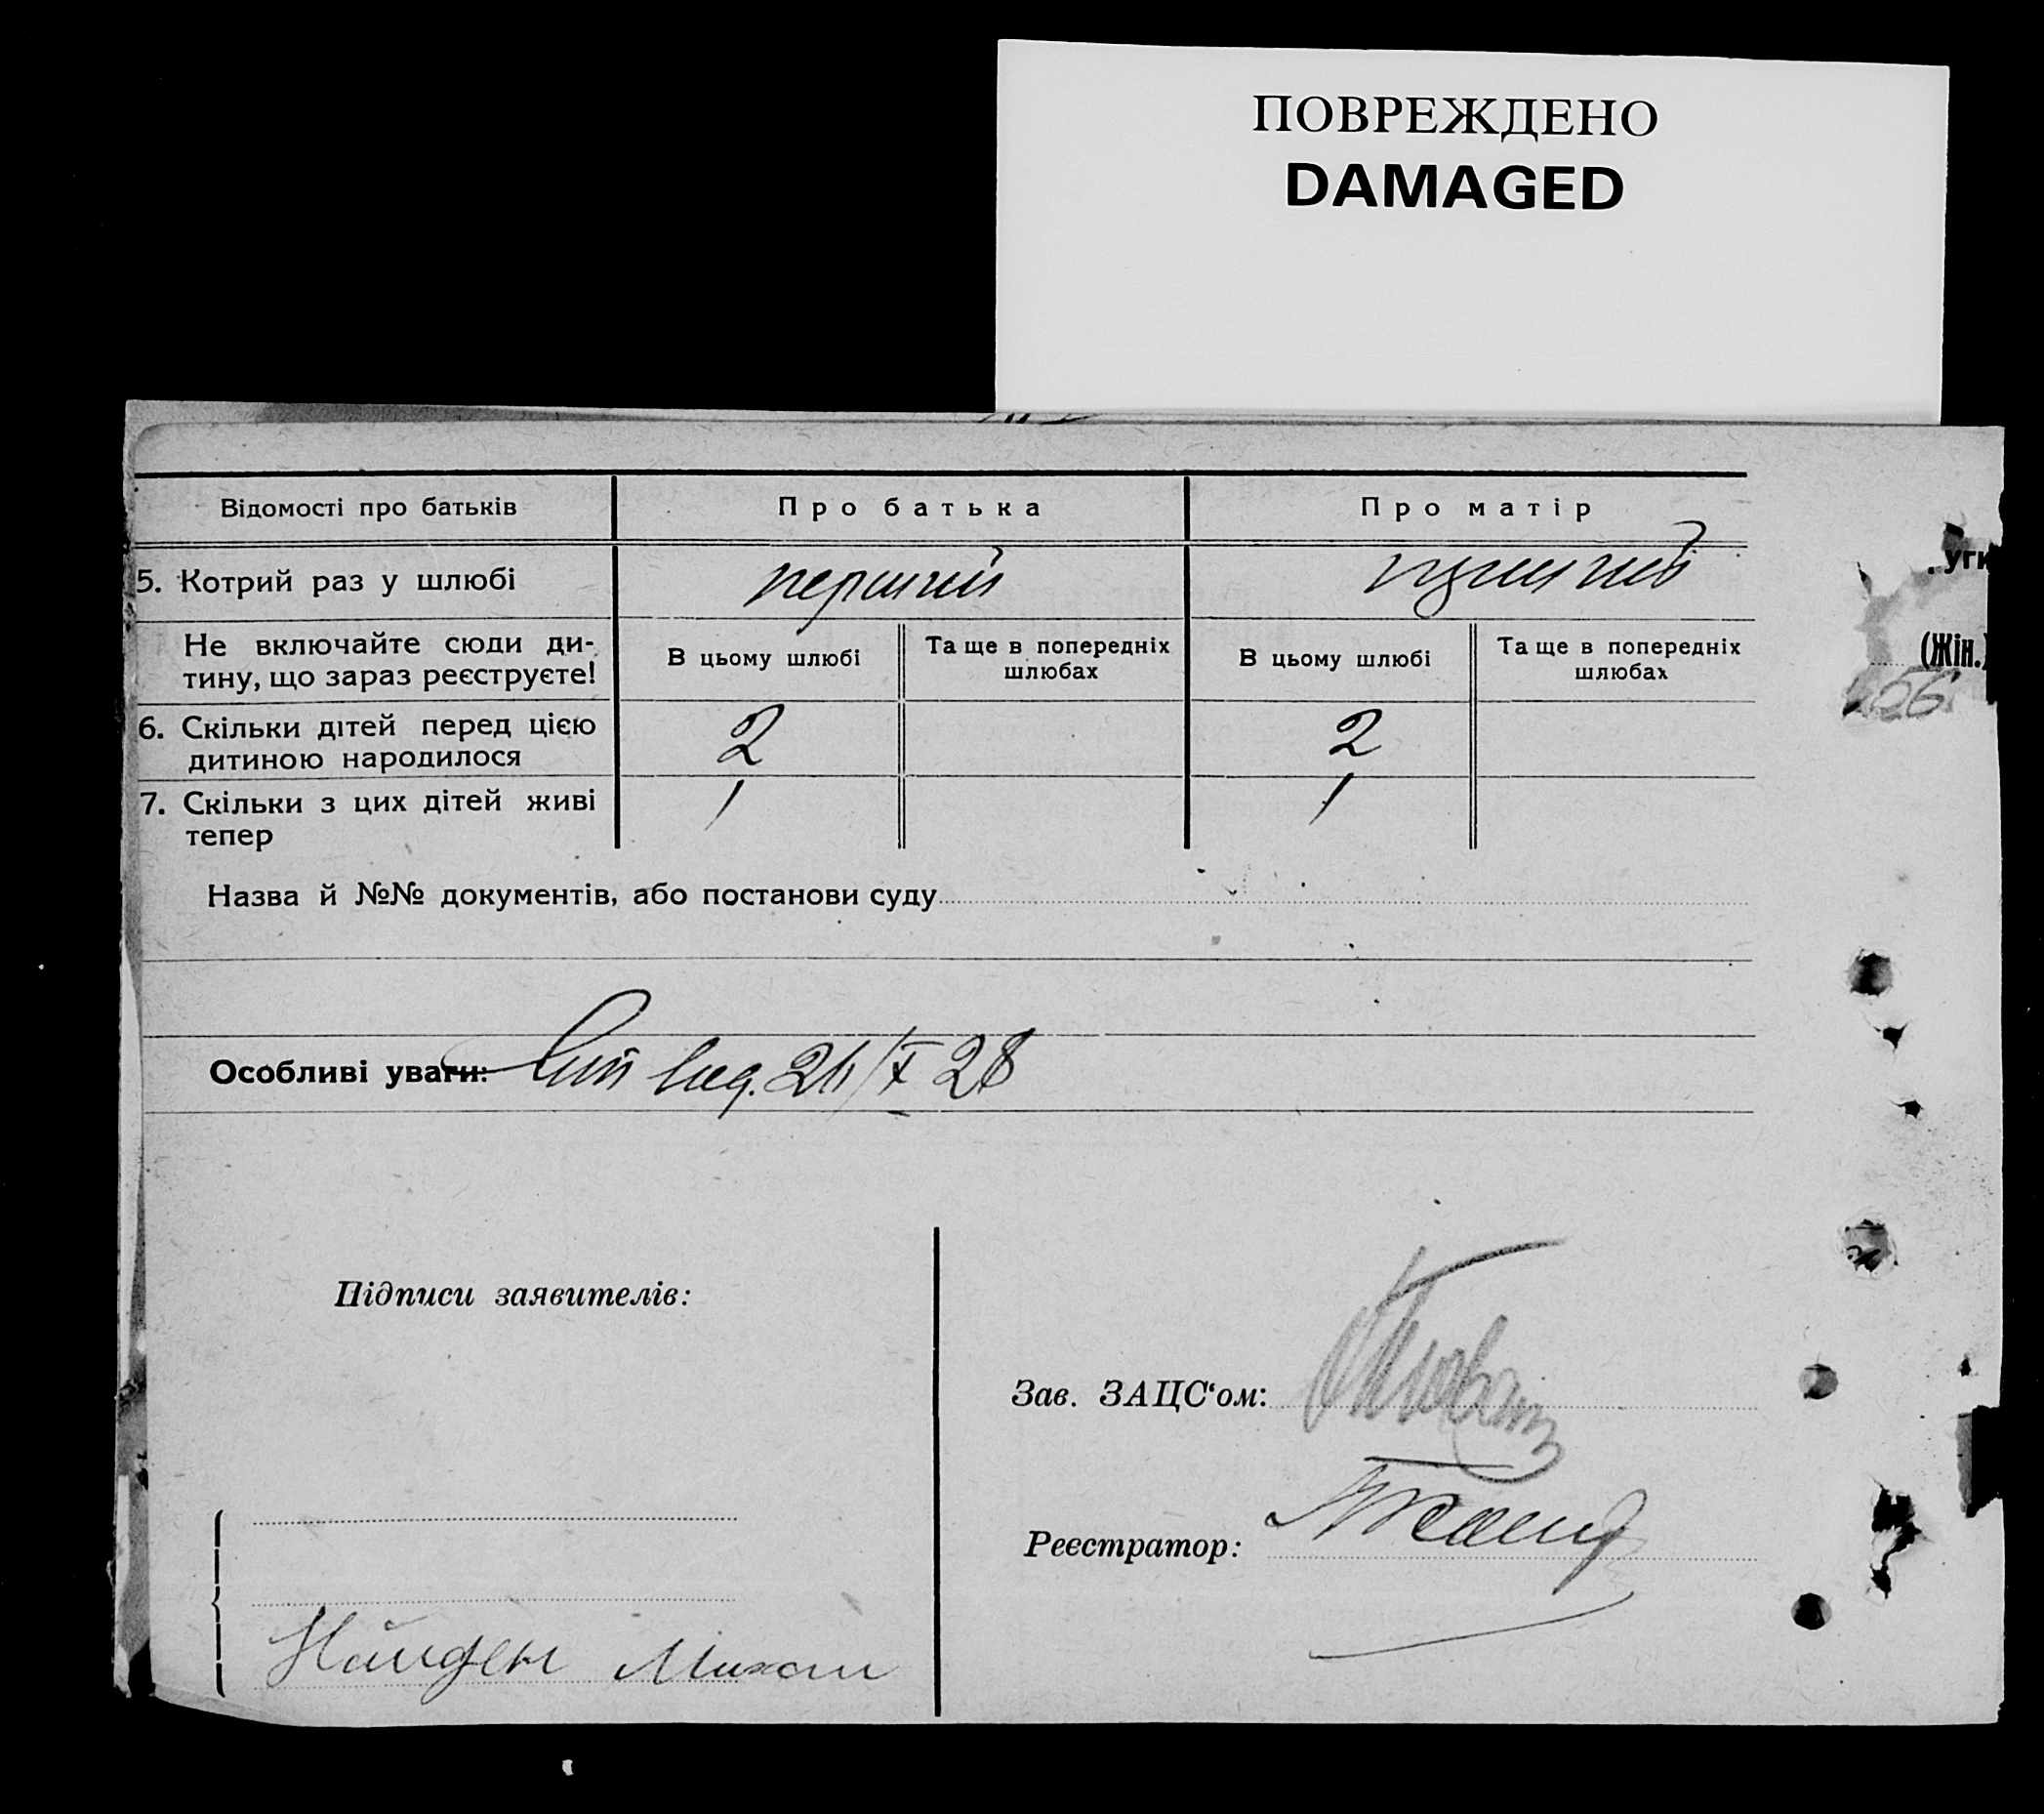 ПОВРЕЖДЕНО
DAMAGED
Відомості про батьків
Про батька
Про матір
5. Котрий раз у шлюбі
перший
перший
Не включайте сюди ди-
тину, що зараз реєструєте!
В цьому шлюбі
Та ще в попередніх
шлюбах
В цьому шлюбі
Та ще в попередніх
шлюбах
6. Скільки дітей перед цією
дитиною народилося
2
2
7. Скільки з цих дітей живі
тепер
1
1
Назва й №№ документів, або постанови суду
Особливі уваги:
28
Підписи заявителів:
Зав. ЗАЦС‘ом:
Реєстратор:
Найден Михаил
(Жін.)